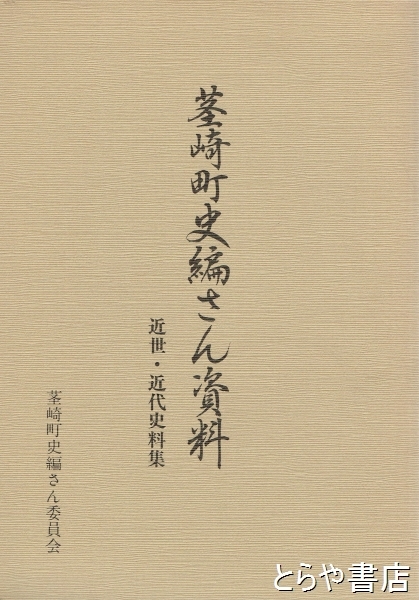 茎崎町史編さん資料
近世・近代史料集
茎崎町史編さん委員会
とらや書店